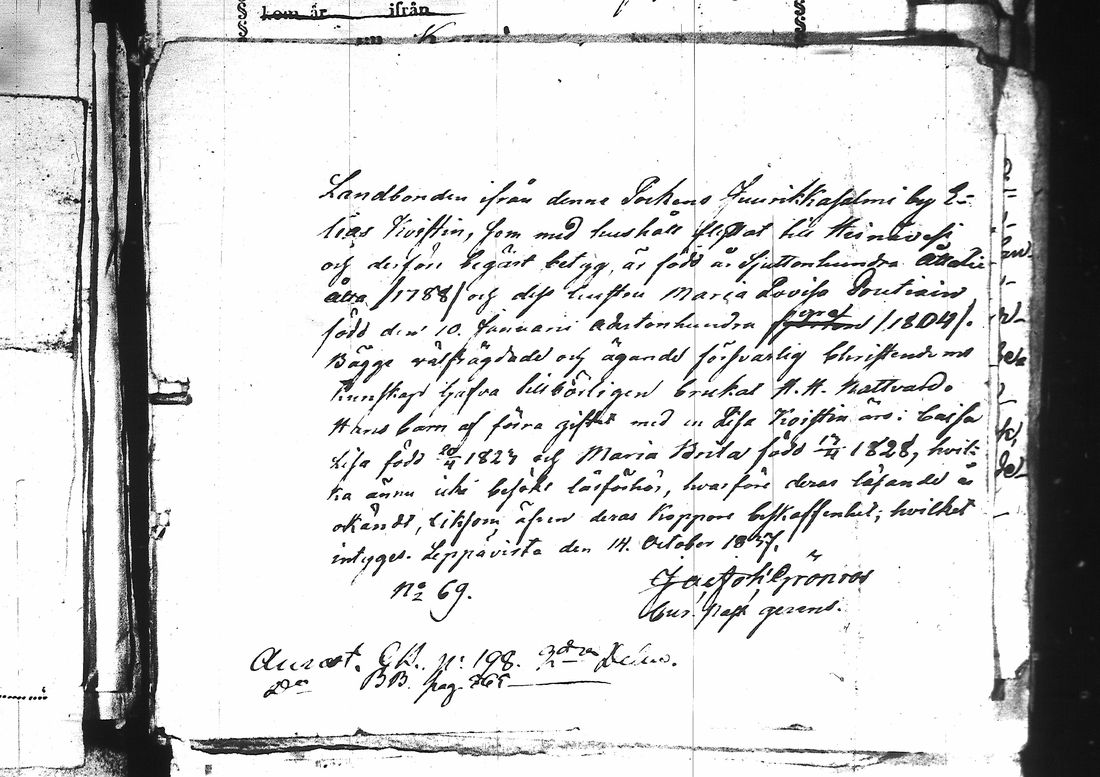 kom år ifrån
Landbonden ifrån denna Sockens Juurikkasalmi by E-
lias Koistin, som med hushåll flyttat till Heinävesi
och derföre begärt betyg, är född år Sjuttonhundra Åttatio
åtta /1788/ och dess hustru Maria Lovisa Poutiain
född den 10. Januarii adertonhundra fyra /1804/.
Bägge välfrägdade och ägande försvarlig Christendoms
kunskap hafva tillbörligen brukat H. H. Nattvard.
Hans barn af förra giftet med en Lisa Koistin äro: Caisa
Lisa född 20/4 1823 och Maria Brita född 17/4 1828, hvil-
ka ännu icke besökt läsförhör, hvarföre deras läsande är
okändt, liksom äfven deras Koppors beskaffenhet; hvilket
intygas. Leppävirta den 14. October 1837.
No 69. Jac. Joh. Grönroos
Cur. Past. gerens.
GB. p: 198. 2dra Delen.
BB. pag. 265